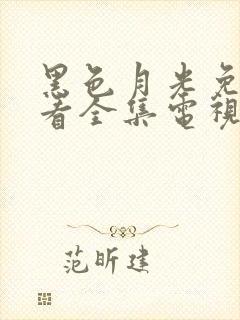 黑色月光免
看全集電視
范昕建